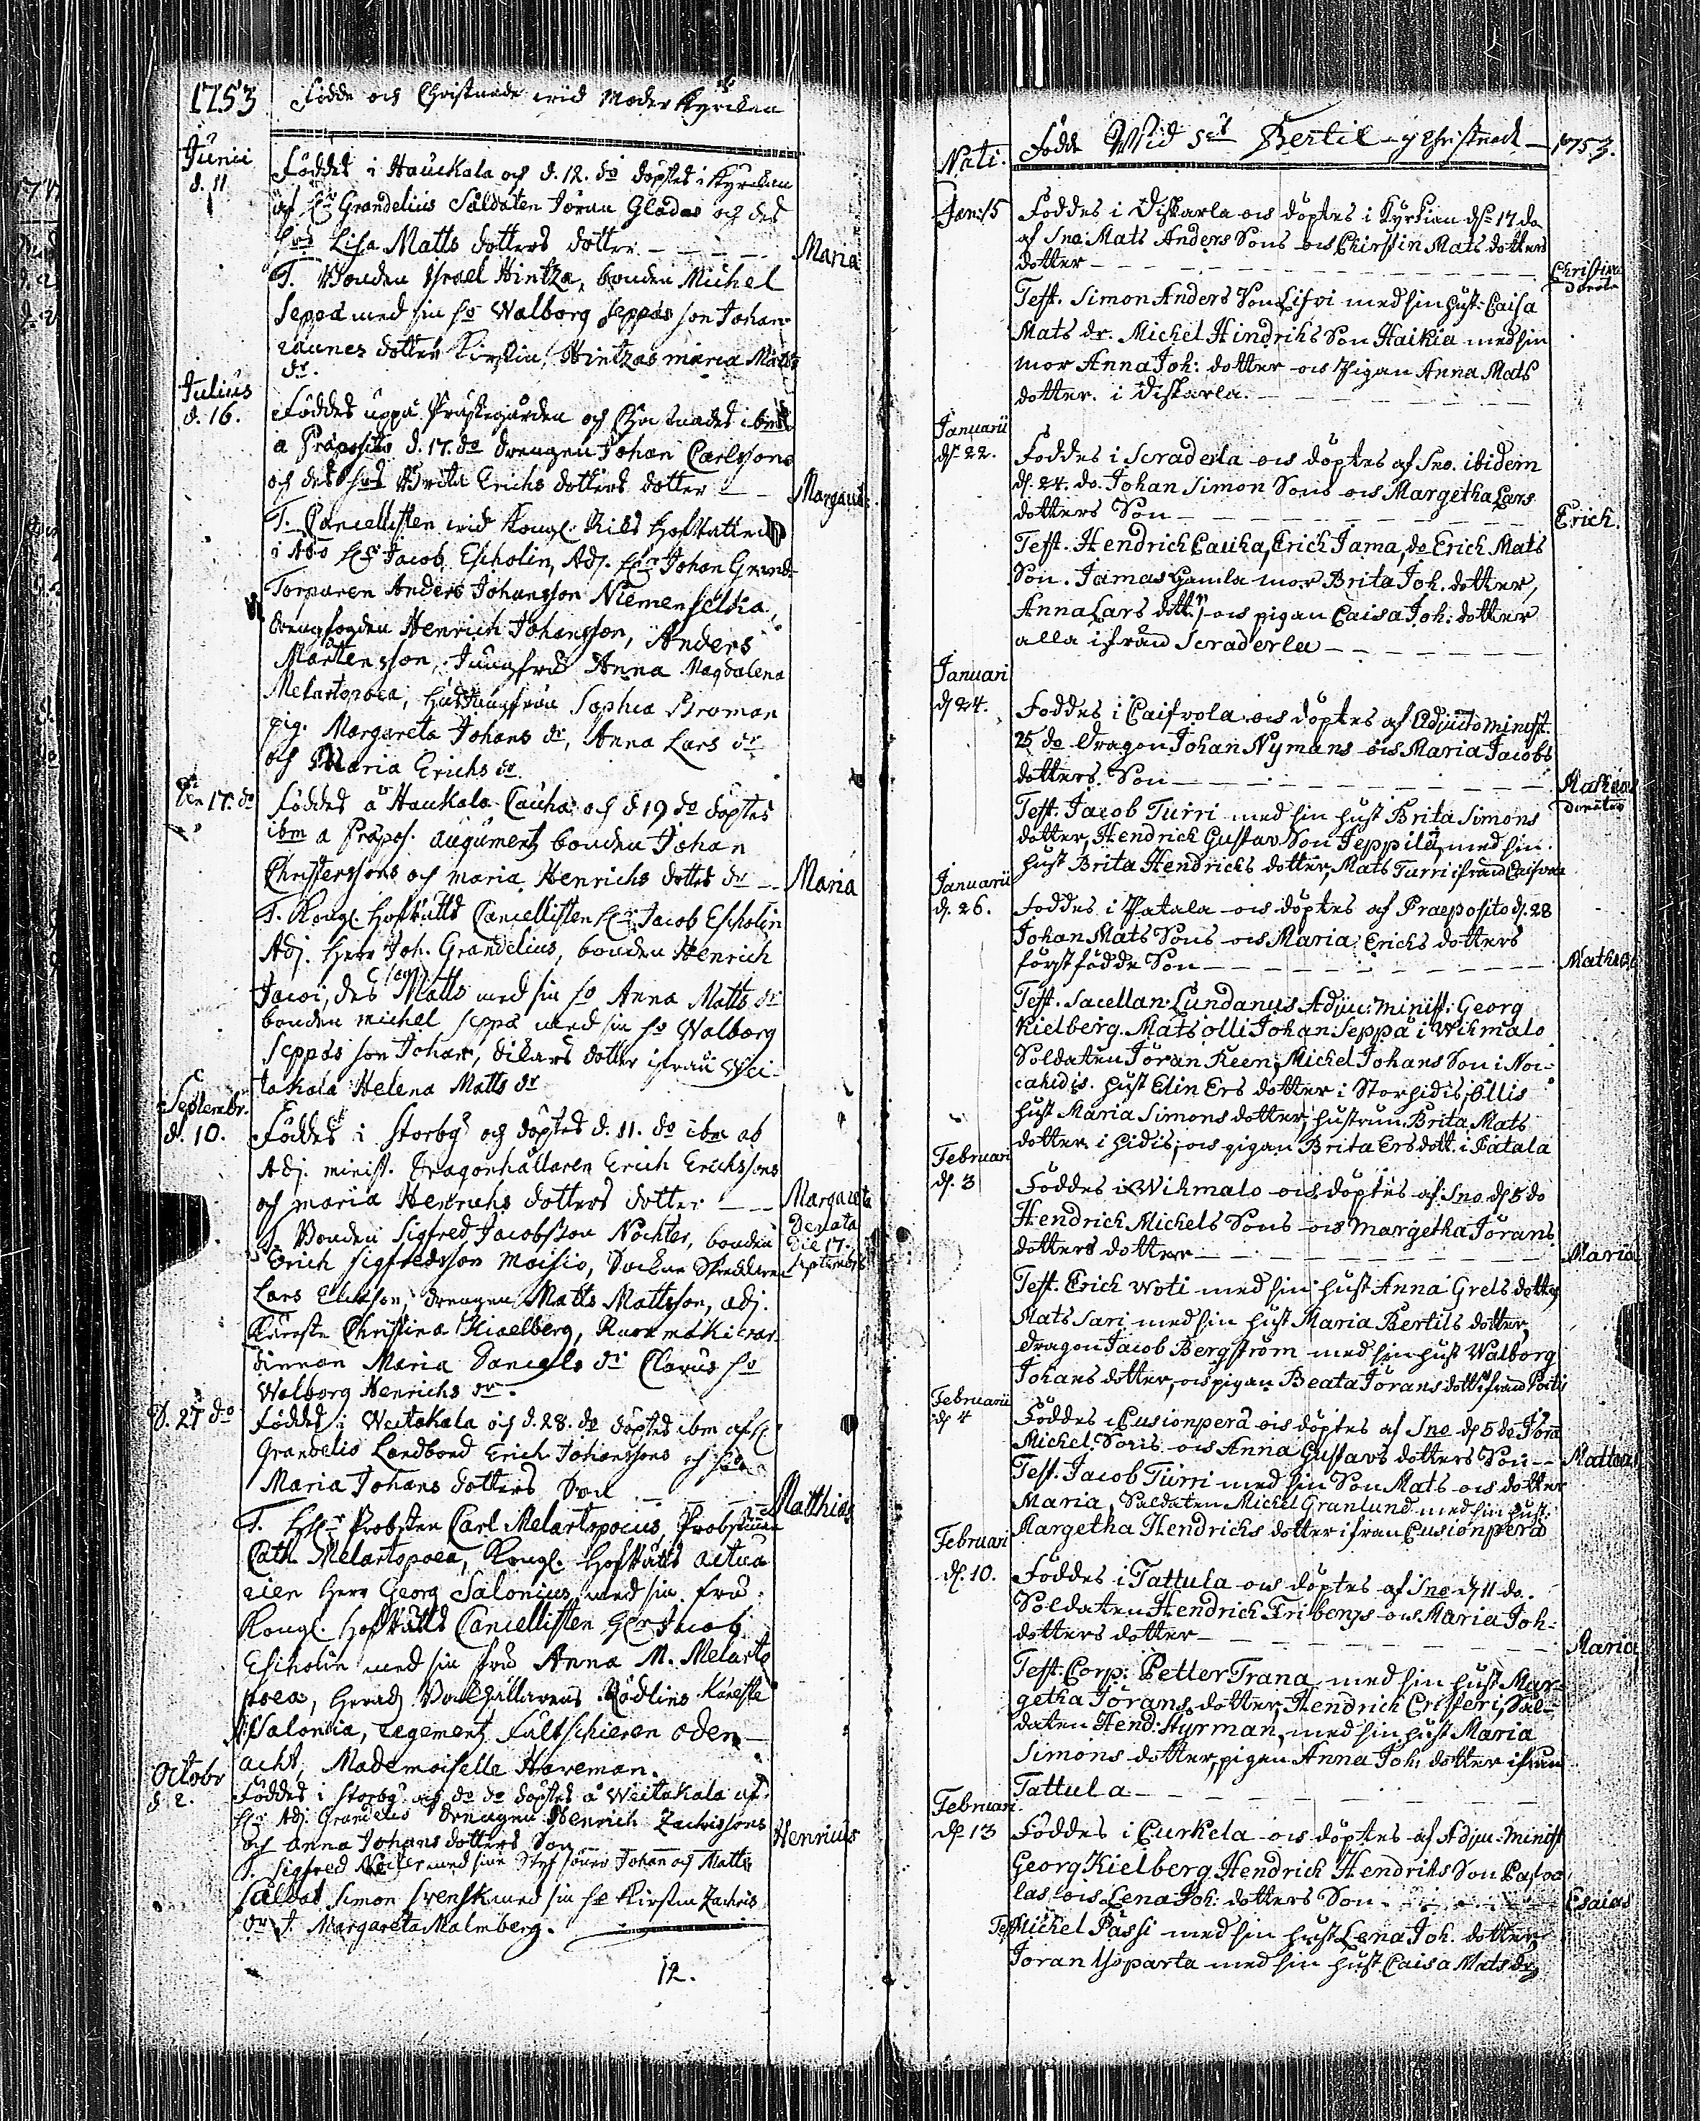 1753 Födde och Christnade wid Moder Kyrckan
Junii
d. 11
Föddes i Hauckala och d. 12. do döptes i Kyrckan
af Hr Grandelius Såldaten Jöran Glados och des
Hos Lisa Matts dotters dotter - - - - Maria
T. Bonden Israel Hintza, bonden Michel
Seppä med sin ho Walborg Seppäs son Johan
dotter Kirstin, Hintzas maria Matts
dr.
Julius
d. 16.
Föddes uppå Prästegården och Christnades ibm
a Præposito d. 17. do drengen Johan Carlssons
och des hos Brita Erichs dotters dotter - - Margareta
T. Cancellisten wid Kongl. Hofrätten
i Åbo Hr Jacob Escholin, Adj. Hr Johan Grand-
Torparen Anders Johansson Niemenseldia,
drengfogden Henrich Johansson, Anders
Mårtensson, Jungfru Anna Magdalena
Melartopoea, Sophia Broman
pig. Margareta Johans dr, Anna Lars dr
och Maria Erichs dr.
Den 17. do
Föddes å Haukala Cauha och d 19 do döptes
ibm a Præpos. bonden Johan
Christerssons och maria Henrichs dotters dr - - Maria
T. Kongl. Hofrätts Cancellisten Hr Jacob Escholin
Adj. Herr Joh. Grandelius, bonden Henrich
Jacoi, des son Matts med sin ho Anna Matts dr
bonden michel Seppä med sin ho Walborg
Seppäs son Johan, dotter ifrån Wei-
takala Helena Matts dr
Septembr.
d. 10.
Föddes i Storby och döptes d. 11. do ibm ab
Adj. minist. Dragonhållaren Erich Erichssons
och maria Henrichs dotters dotter - - - Margareta
Denata
die 17
Septembris
Bonden Sigfred Jacobsson Nochter, bonden
Erich Sigfredsson Moisio, Sockne Skreddaren
Lars Ericsson, drengen Matts Mattsson, adj.
Käreste Christina Kiaelberg,
Maria Daniels dr Clavus ho
Walborg Henrichs dr.
D. 27 do
Föddes i Weitakala och d. 28. do döptes ibm af H
Grandelio Landbond Erich Johanssons och hos
Maria Johans dotters Son - - - Matthias
T. Hr Probsten Carl Melartopoeus, Probstinnan
Cath. Melartopoea, Kongl. Hofrätts actua
rien Herr Georg Salonius med sin fru
Kongl. Hofrätts Cancellisten Hr Jacob
Escholin med sin fru Anna M. Melarto
poea, Rödlins Käreste
Salonia, regements Fältschieren Oden-
acht, Mademoiselle Hareman.
Octobr
d. 2.
Föddes i Storby och do do döptes å Weitakala af
Hr Adj. Grandelio drengen Henrich Zachrissons
och Anna Johans dotters Son Henricus
T. Sigfred Nocter med sine Styf söner Johan och Matts
Såldat Simon Svensk med sin ho Kirstin Zachris
dr J. Margareta Malmberg.
12.
Nati. Födde Wid Sct Bertil - y Christnade - 1753.
Jan: 15
Föddes i Viskarla ock döptes i Kyrkian d. 17 do
af Sno. Mats Anders Sons ock Chirstin Mats dotters
dotter - - - Christina
Denata
Test. Simon Anders Son Lisvi med sin hust: Caisa
Mats dr. Michel Hindrichs Son Haikia med sin
mor Anna Joh: dotter ock Pigan Anna Mats
dotter i Viskarla. - - -
Januarii
d. 22.
Föddes i Scraderla ock döptes af Sno. ibidem
d. 24. do. Johan Simon Sons ock Margetha Lars
dotters Son - - - Erich.
Test. Hendrich Cauha, Erich Jama, do Erich Mats
Son. Jamas Gamla mor Brita Joh. dotter,
Anna Lars dottr, ock pigan Caisa Joh: dotter
alla ifrån Scraderla - - -
Januari
d 24.
Föddes i Caifvola ock döptes af Adjuncto minist.
25 do Dragon Johan Nymans ock Maria Jacobs
dotters Son - - - Mathias
Denatus
Test. Jacob Turri med sin hust Brita Simons
dotter, Hendrich Gustav Son Jeppilä, med sin
hust Brita Hendrichs dotter, Mats Turri ifrån Caifvola
Januarii
d. 26.
Föddes i Patala ock döptes af Praeposito d. 28
Johan Mats Sons ock Maria Erichs dotters
förstfödde Son - - - Mathias
Test. Sacellan. Lundanus Adjun: Minist: Georg
Kielberg. Mats Olli Johan Seppä i Wihmalo
Soldaten Jöran Keen, Michel Johans Son i Noi-
cahidis. hust Elin Ers dotter i Storhidis, Ollis
hust Maria Simons dotter, hustrun Brita Mats
dotter i hidis, ock pigan Brita Ers dott. i Patala
Februari
d. 3
Föddes i Wihmalo ock döptes af Sno d. 5 do
Hendrich Michels Sons ock Margetha Jörans
dotters dotter - - - Maria
Test. Erich Woti med sin hust Anna Grels dotter
Mats Sari med sin hust Maria Bertils dotter
dragon Jacob Bergström med sin hust Walborg
Johans dotter, ock pigan Beata Jörans dott ifrån Pöitis
Februarii
d. 4
Föddes i Cusionperä ock döptes af Sno d. 5 do Jöran
Michel Sons ock Anna Gustavs dotters Son - - Mathias
Test. Jacob Turri med sin Son Mats ock dotter
Maria, Soldaten Michel Granlund med sin hust.
Margetha Hendrichs dotter ifrån Cusionperä
Februari
d. 10.
Föddes i Tattula ock döptes af Sno d 11 do.
Soldaten Hendrich Fribergs ock Maria Joh:
dotters dotter - - - Maria
Test. Corp: Petter Trana med sin hust Mar-
getha Jörans dotter, Hendrich Cristeri, Sol-
daten Hend: Styrman, med sin hust Maria
Simons dotter, pigan Anna Joh: dotter ifrån
Tattula - - -
Februari.
d. 13
Föddes i Curkela ock döptes af Adjun. Minist
Georg Kielberg Hendrich Hendriks Son Pavo
las ock Lena Joh: dotters Son - - - Esaias
Test. Michel Passi med sin hust Lena Joh. dotter
Jöran Yoparta med sin hust Caisa Mats dr